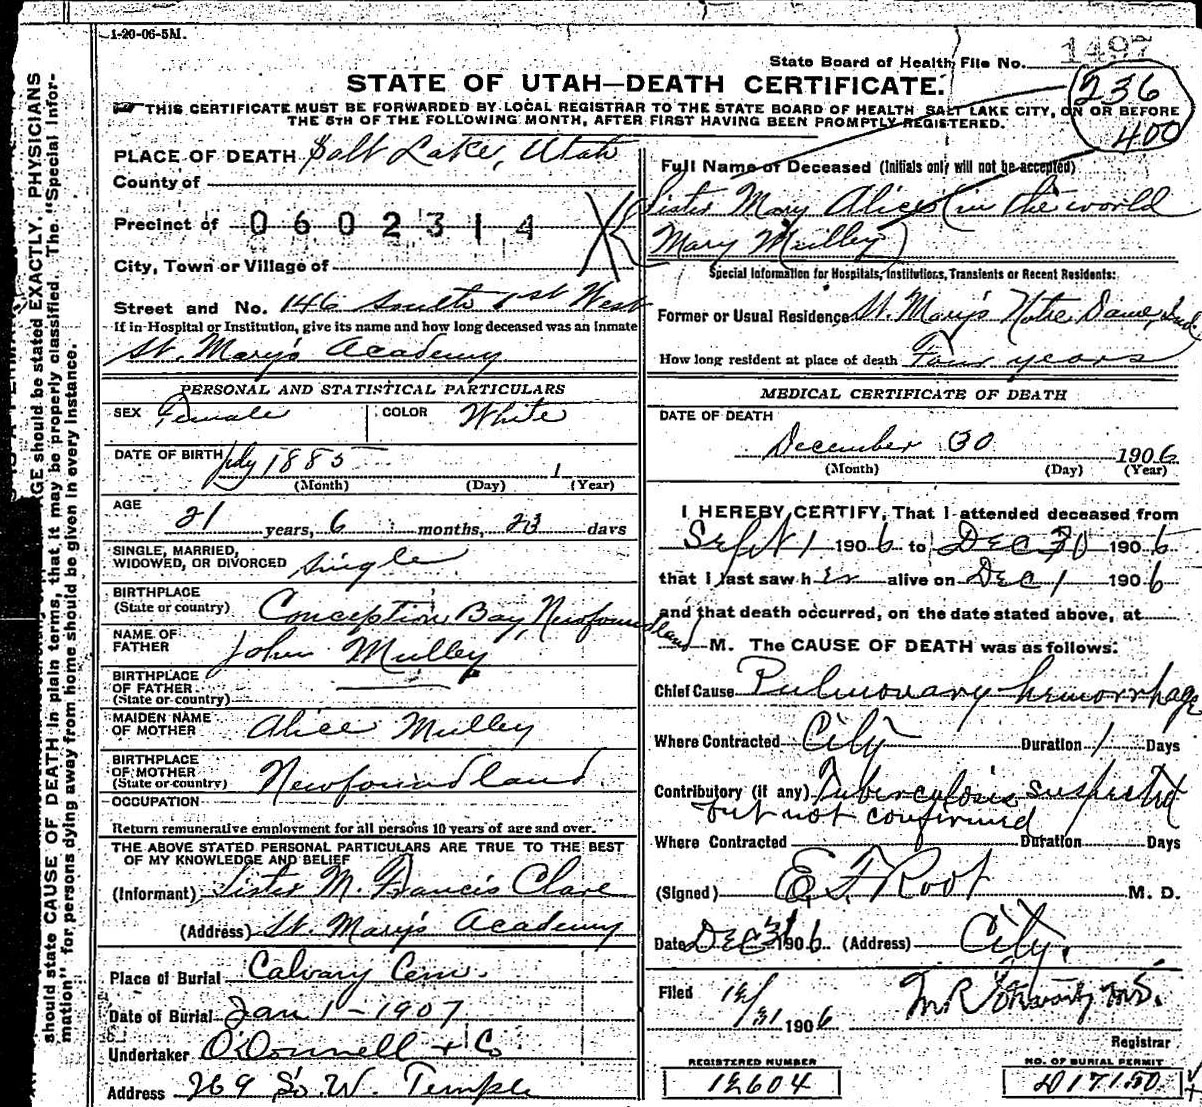 1-20-06-5M.
State Board of Health File No. 1497
STATE OF UTAH—DEATH CERTIFICATE.
236
400
THIS CERTIFICATE MUST BE FORWARDED BY LOCAL REGISTRAR TO THE STATE BOARD OF HEALTH, SALT LAKE CITY, ON OR BEFORE
THE 5TH OF THE FOLLOWING MONTH, AFTER FIRST HAVING BEEN PROMPTLY REGISTERED.
PLACE OF DEATH Salt Lake, Utah
County of
Precinct of 0602314
City, Town or Village of
Street and No. 146 South 1st West
If in Hospital or Institution, give its name and how long deceased was an inmate
St. Mary's Academy
PERSONAL AND STATISTICAL PARTICULARS
SEX Female COLOR White
DATE OF BIRTH July 1885 1
(Month) (Day) (Year)
AGE
21 years, 6 months, 23 days
SINGLE, MARRIED,
WIDOWED, OR DIVORCED Single
BIRTHPLACE
(State or country) Conception Bay, Newfoundland
NAME OF
FATHER John Mulley
BIRTHPLACE
OF FATHER
(State or country)
MAIDEN NAME
OF MOTHER Alice Mulley
BIRTHPLACE
OF MOTHER
(State or country) Newfoundland
OCCUPATION
Return remunerative employment for all persons 10 years of age and over.
THE ABOVE STATED PERSONAL PARTICULARS ARE TRUE TO THE BEST
OF MY KNOWLEDGE AND BELIEF
(Informant) Sister M. Francis Clare
(Address) St. Mary's Academy
Place of Burial Calvary Cem.
Date of Burial Jan 1-1907
Undertaker O'Donnell & Co
Address 269 So. W. Temple
Full Name of Deceased (Initials only will not be accepted)
Sister Mary Alice (in the world
Mary Mulley)
Special Information for Hospitals, Institutions, Transients or Recent Residents:
Former or Usual Residence St. Mary's Notre Dame, Ind
How long resident at place of death Four years
MEDICAL CERTIFICATE OF DEATH
DATE OF DEATH
December 30 1906
(Month) (Day) (Year)
I HEREBY CERTIFY, That I attended deceased from
Sept 1 1906 to Dec 30 1906
that I last saw her alive on Dec 1 1906
and that death occurred, on the date stated above, at
M. The CAUSE OF DEATH was as follows:
Chief Cause Pulmonary hemorrhage
Where Contracted City Duration 1 Days
Contributory (if any) Tuberculosis suspected
but not confirmed
Where Contracted Duration Days
(Signed) E. F. Root M. D.
Date Dec 31 1906 (Address) City.
Filed 12/31 1906
Registrar
REGISTERED NUMBER
12604
NO. OF BURIAL PERMIT
D17150
AGE should be stated EXACTLY, PHYSICIANS
should state CAUSE OF DEATH in plain terms, that it may be properly classified. The "Special Infor-
mation" for persons dying away from home should be given in every instance.